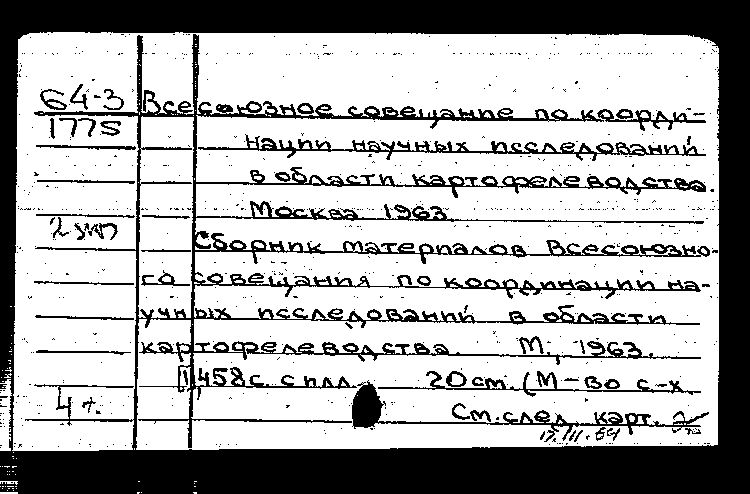 64-3
1775
Всесоюзное совещание по коорди-
нации научных исследований
в области картофелеводства.
Москва 1963
2 экз
Сборник материалов Всесоюзно-
го совещания по координации на-
учных исследований в области
картофелеводства. М., 1963.
[1], 458 с. с илл. 20 см. (М-во с.-х.
4 т.
См. след. карт.